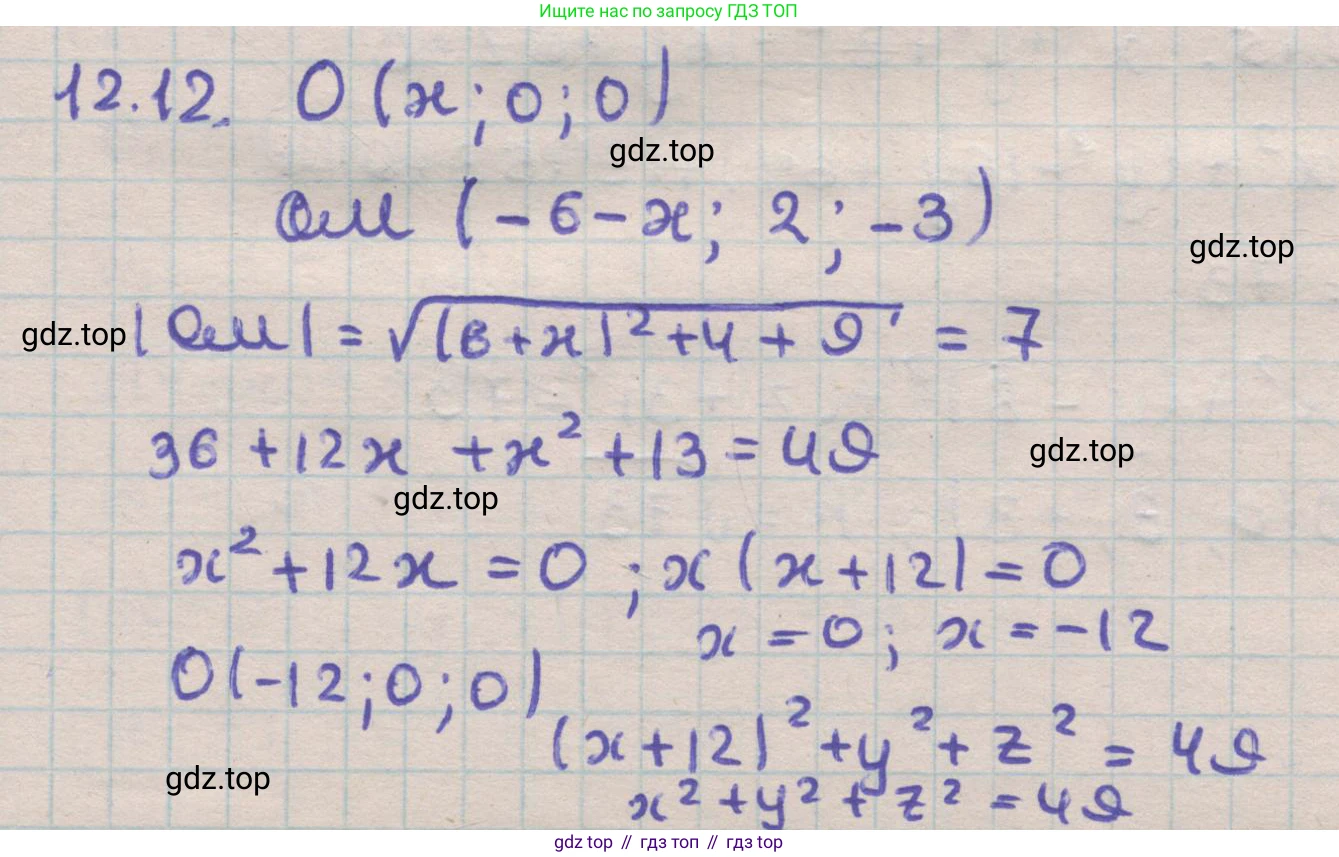 Ищите нас по запросу ГДЗ ТОП
12.12. O(x; 0; 0)
gdz.top
OM (-6-x; 2; -3)
gdz.top
gdz.top |OM| = √(6+x)²+4+9 = 7
36 + 12x + x² + 13 = 49
gdz.top
gdz.top
x² + 12x = 0 ; x(x+12) = 0
x = 0; x = -12
O(-12; 0; 0)
(x+12)² + y² + z² = 49
gdz.top
x² + y² + z² = 49
gdz top // гдз топ // гдз top